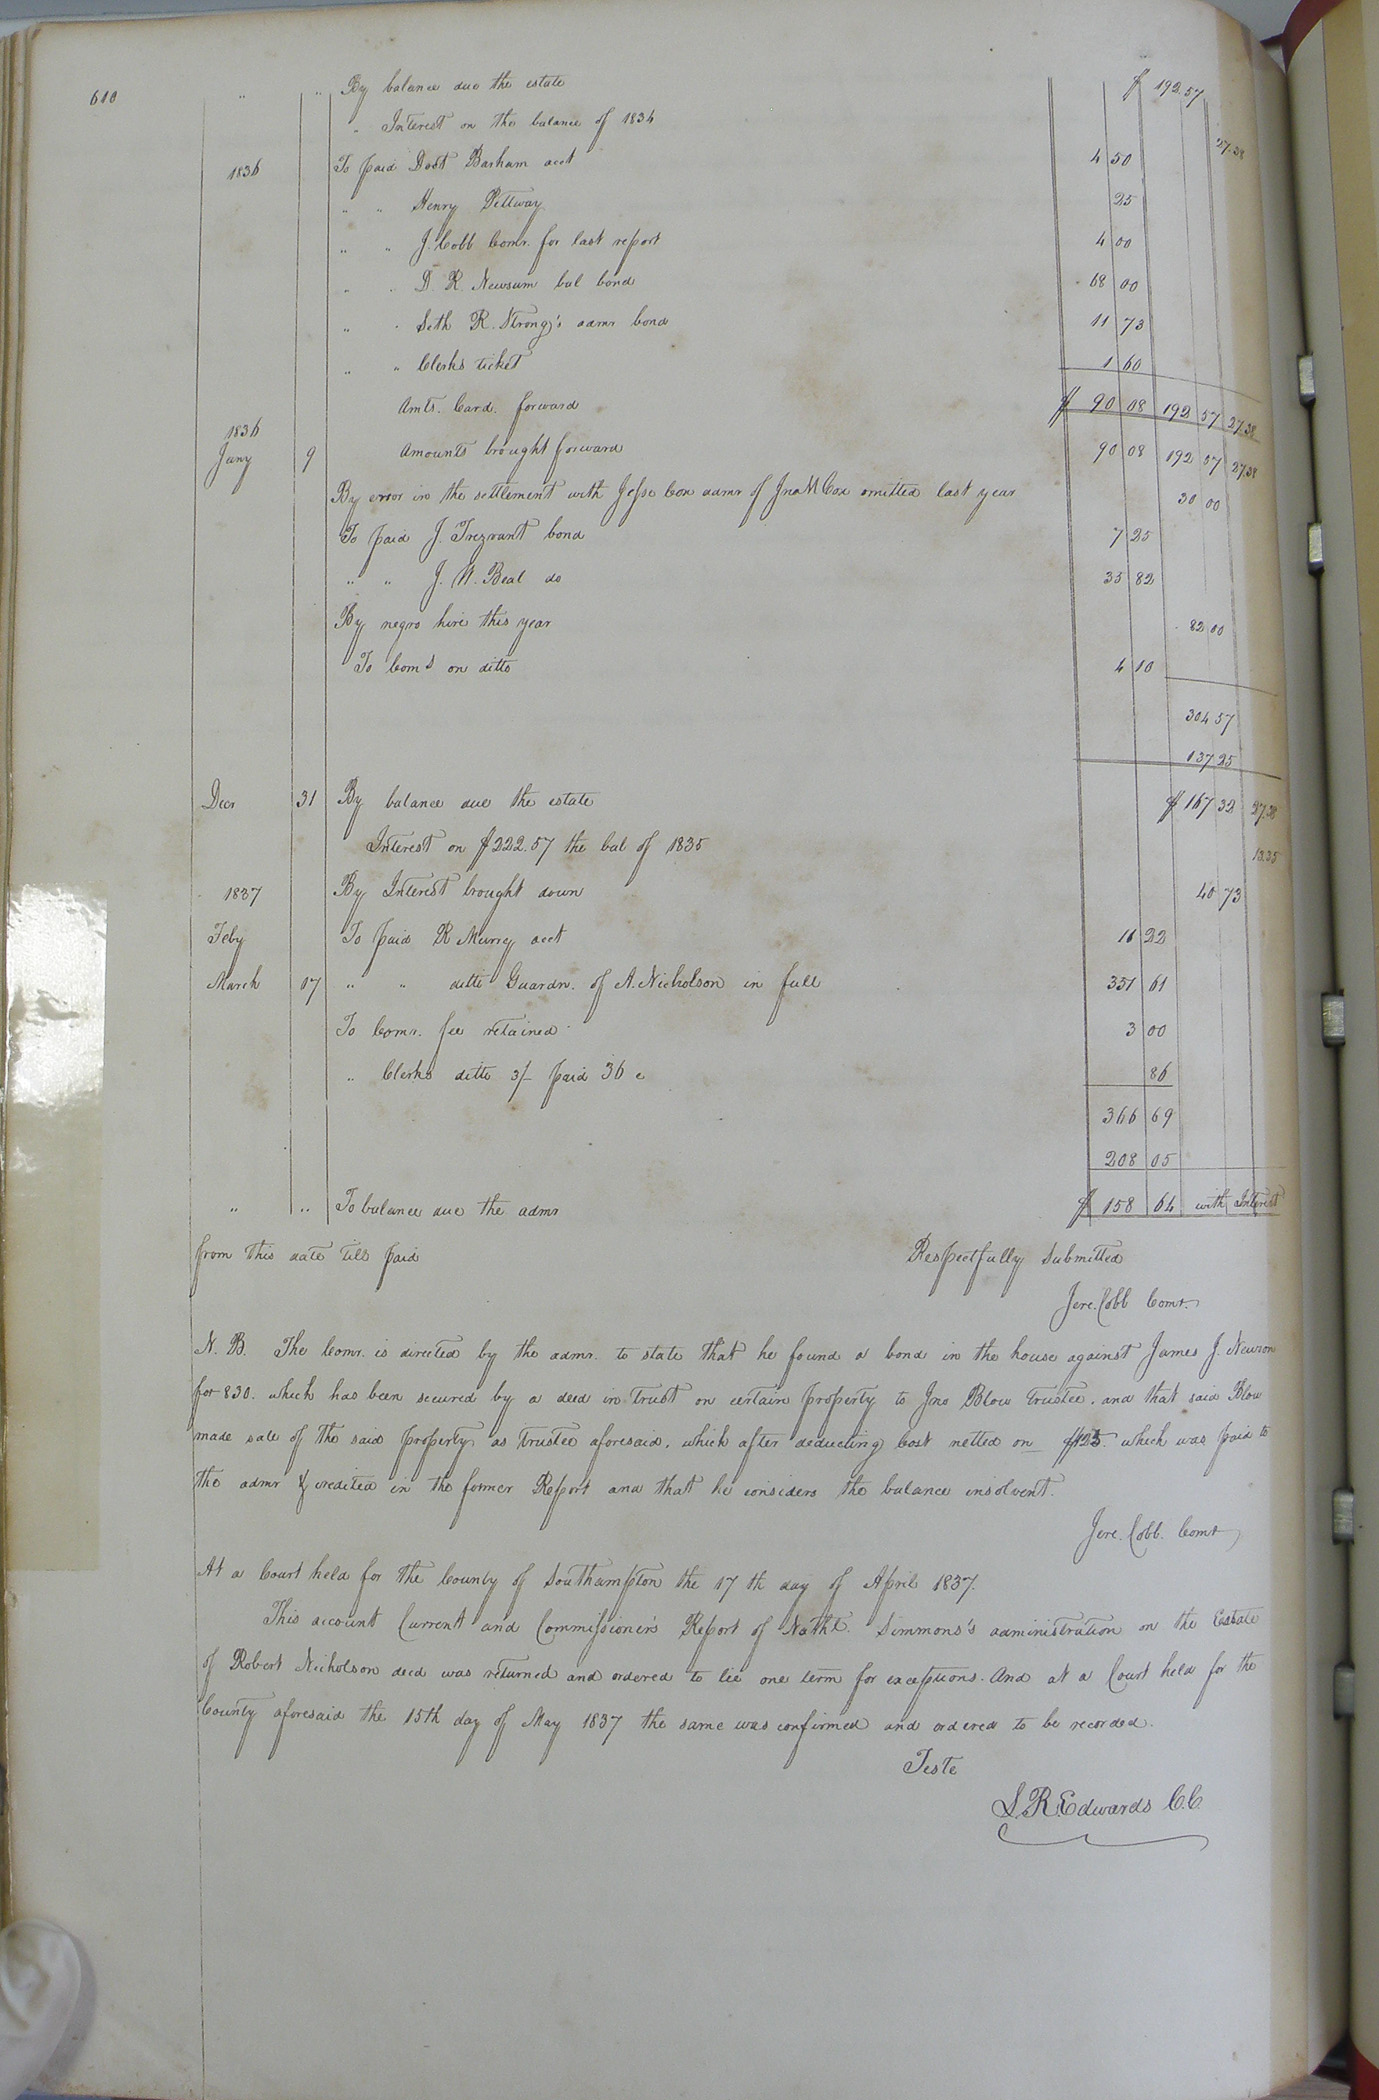 610
" " By balance due the estate $ 192.57
" Interest on the balance of 1834 27.38
1836 To paid Doct Barham acct 4 50
" " Henry Pettway 25
" " J. Cobb Comr. for last report 4 00
" " D. R. Newsum bal bond 68 00
" " Seth R. Strong's admr bond 11 73
" " Clerks ticket 1 60
Amts. Card. forward $ 90 08 192 57 27.38
1836
Jany 9 Amounts brought forward 90 08 192 57 27.38
By error in the settlement with Jesse Cox admr of Jno M Cox omitted last year 30 00
To paid J. Trezvant bond 7 25
" " J. W. Beal do 35 82
By negro hire this year 82 00
To Coms on ditto 4 10
304 57
137 25
Decr 31 By balance due the estate $ 167 32 27.38
Interest on $222.57 the bal of 1835 13.35
1837 By Interest brought down 40 73
Feby To paid R Murry acct 11 22
March 17 " " ditto Guardn. of A. Nicholson in full 351 61
To Comr. fee retained 3 00
" Clerks ditto 3/- paid 36 c 86
366 69
208 05
" " To balance due the admr $ 158 64 with Interest
from this date till paid Respectfully Submitted
Jere. Cobb Comr.
N. B. The Comr. is directed by the admr. to state that he found a bond in the house against James J. Newson
for 830. which has been secured by a deed in Trust on certain property to Jno Blow trustee. and that said Blow
made sale of the said property as trustee aforesaid. which after deducting Cost netted on $125. which was paid to
the admr & credited in the former Report and that he considers the balance insolvent.
Jere. Cobb. Comr
At a Court held for the County of Southampton the 17 th day of April 1837.
This account Current and Commissioner's Report of Nathl. Simmons's administration on the Estate
of Robert Nicholson decd was returned and ordered to lie one term for exceptions. And at a Court held for the
County aforesaid the 15th day of May 1837 the same was confirmed and ordered to be recorded.
Teste
L. R. Edwards C.C.